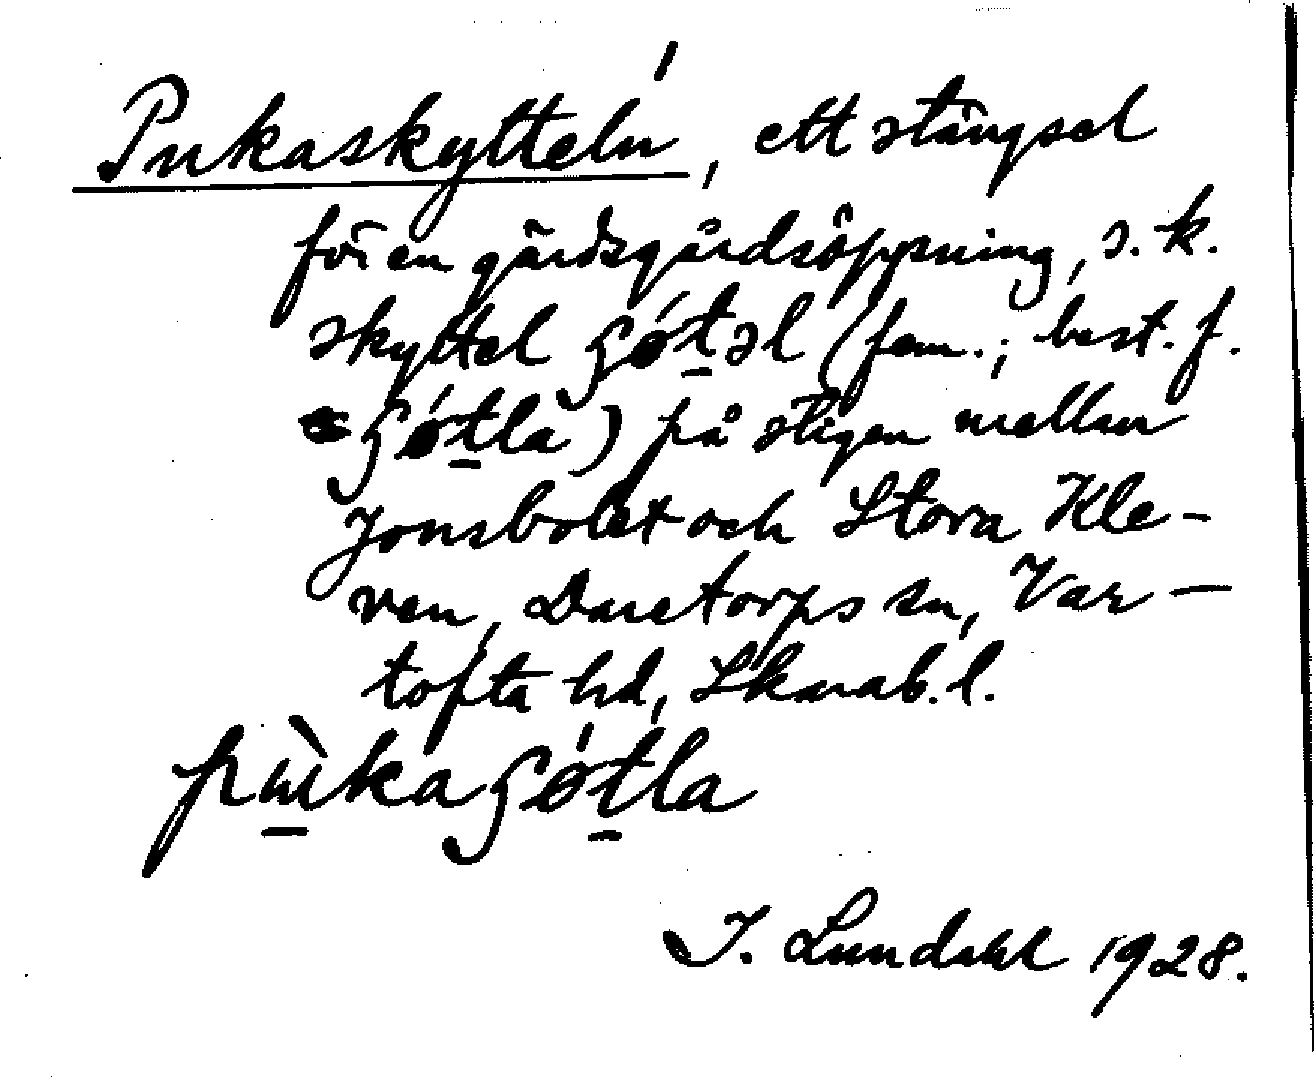 Pukaskytteln, ett stängsel
för en gärdsgårdsöppning, s.k.
skyttel ʂó̱təl (fem.; best. f.
ʂótla) på stigen mellan
Jonsbolet och Stora Kle-
ven, Daretorps sn, Var-
tofta hd, Skarab. l.
pùkaʂótla
I. Lundahl 1928.